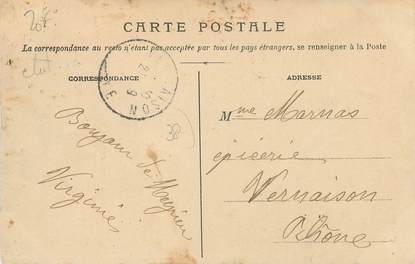 CARTE POSTALE
La correspondance au recto n'étant pas acceptée par tous les pays étrangers, se renseigner à la Poste
CORRESPONDANCE
ADRESSE
Bonjour de
Virginie
Mme Marnas
épicerie
Vernaison
Rhône